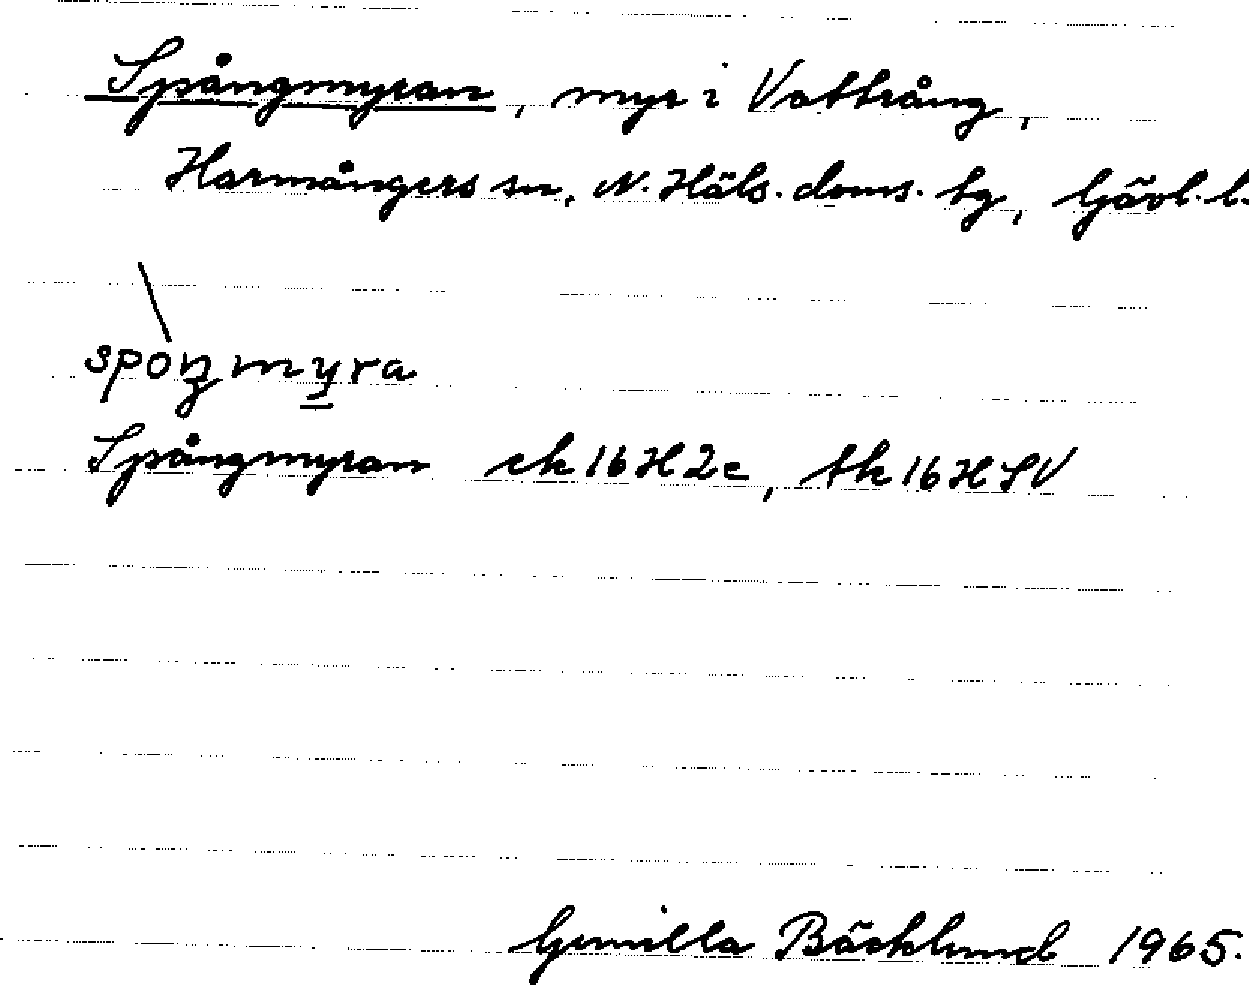 Spångmyran, myr i Vattrång,
Harmångers sn, N. Häls. doms. tg, Gävl. l.
spòŋmy̲ra
Spångmyran ek 16H2c, tk 16HSV
Gunilla Bäcklund 1965.